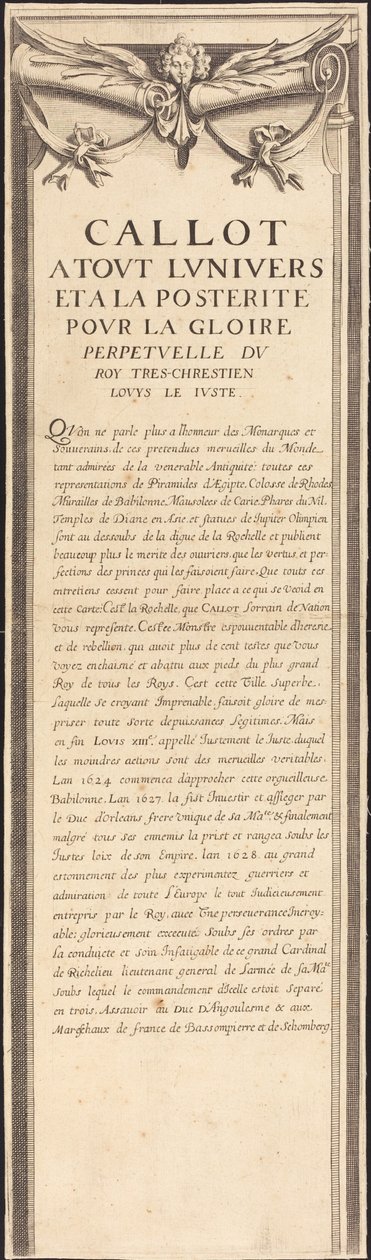 CALLOT
ATOVT LVNIVERS
ET A LA POSTERITE
POVR LA GLOIRE
PERPETVELLE DV
ROY TRES-CHRESTIEN
LOVYS LE IVSTE.
QVón ne parle plus a lhonneur des Monarques et
Souuerains, de ces pretendues merueilles du Monde
tant admirées de la venerable Antiquité: toutes ces
representations de Piramides dÆgipte, Colosse de Rhodes,
Murailles de Babilonne, Mausolees de Carie, Phares du Nil,
Temples de Diane en Asie, et statues de Iupiter Olimpien,
sont au dessoubs de la digue de la Rochelle et publient
beaucoup plus le merite des ouuriers, que les vertus, et per-
fections des princes qui les faisoient faire. Que touts ces
entretiens cessent pour faire place a ce qui se void en
ceste Carte: Cest la Rochelle, que CALLOT Lorrain de Nation
vous represente. Cest ce Monstre espouuentable dheresie
et de rebellion, qui auoit plus de cent testes que vous
voyez enchaisné et abattu aux pieds du plus grand
Roy de tous les Roys. Cest cette Ville Superbe,
Laquelle se croyant Imprenable, faisoit gloire de mes-
priser toute sorte de puissances Legitimes. Mais
en fin LOVIS XIII.e appellé Iustement le Iuste, duquel
les moindres actions sont des merueilles veritables,
Lan 1624 commenca dapprocher cette orgueilleuse
Babilonne. Lan 1627. la fist Inuestir et assieger par
le Duc dOrleans frere vnique de sa Ma.te & finalement
malgré tous ses ennemis la prist et rangea soubs les
Iustes loix de son Empire. lan 1628. au grand
estonnement des plus experimentez guerriers et
admiration de toute l'Europe le tout Iudicieusement
entrepris par le Roy, auec Vne perseuerance Incroy-
able: glorieusement exécuté Soubs ses ordres par
la conduicte et soin Infatigable de ce grand Cardinal
de Richelieu lieutenant general de Larmée de sa Ma.te
soubs lequel le commandement dIcelle estoit Separé
en trois. Assauoir au Duc DAngoulesme & aux
Mareschaux de france de Bassompierre et de Schomberg